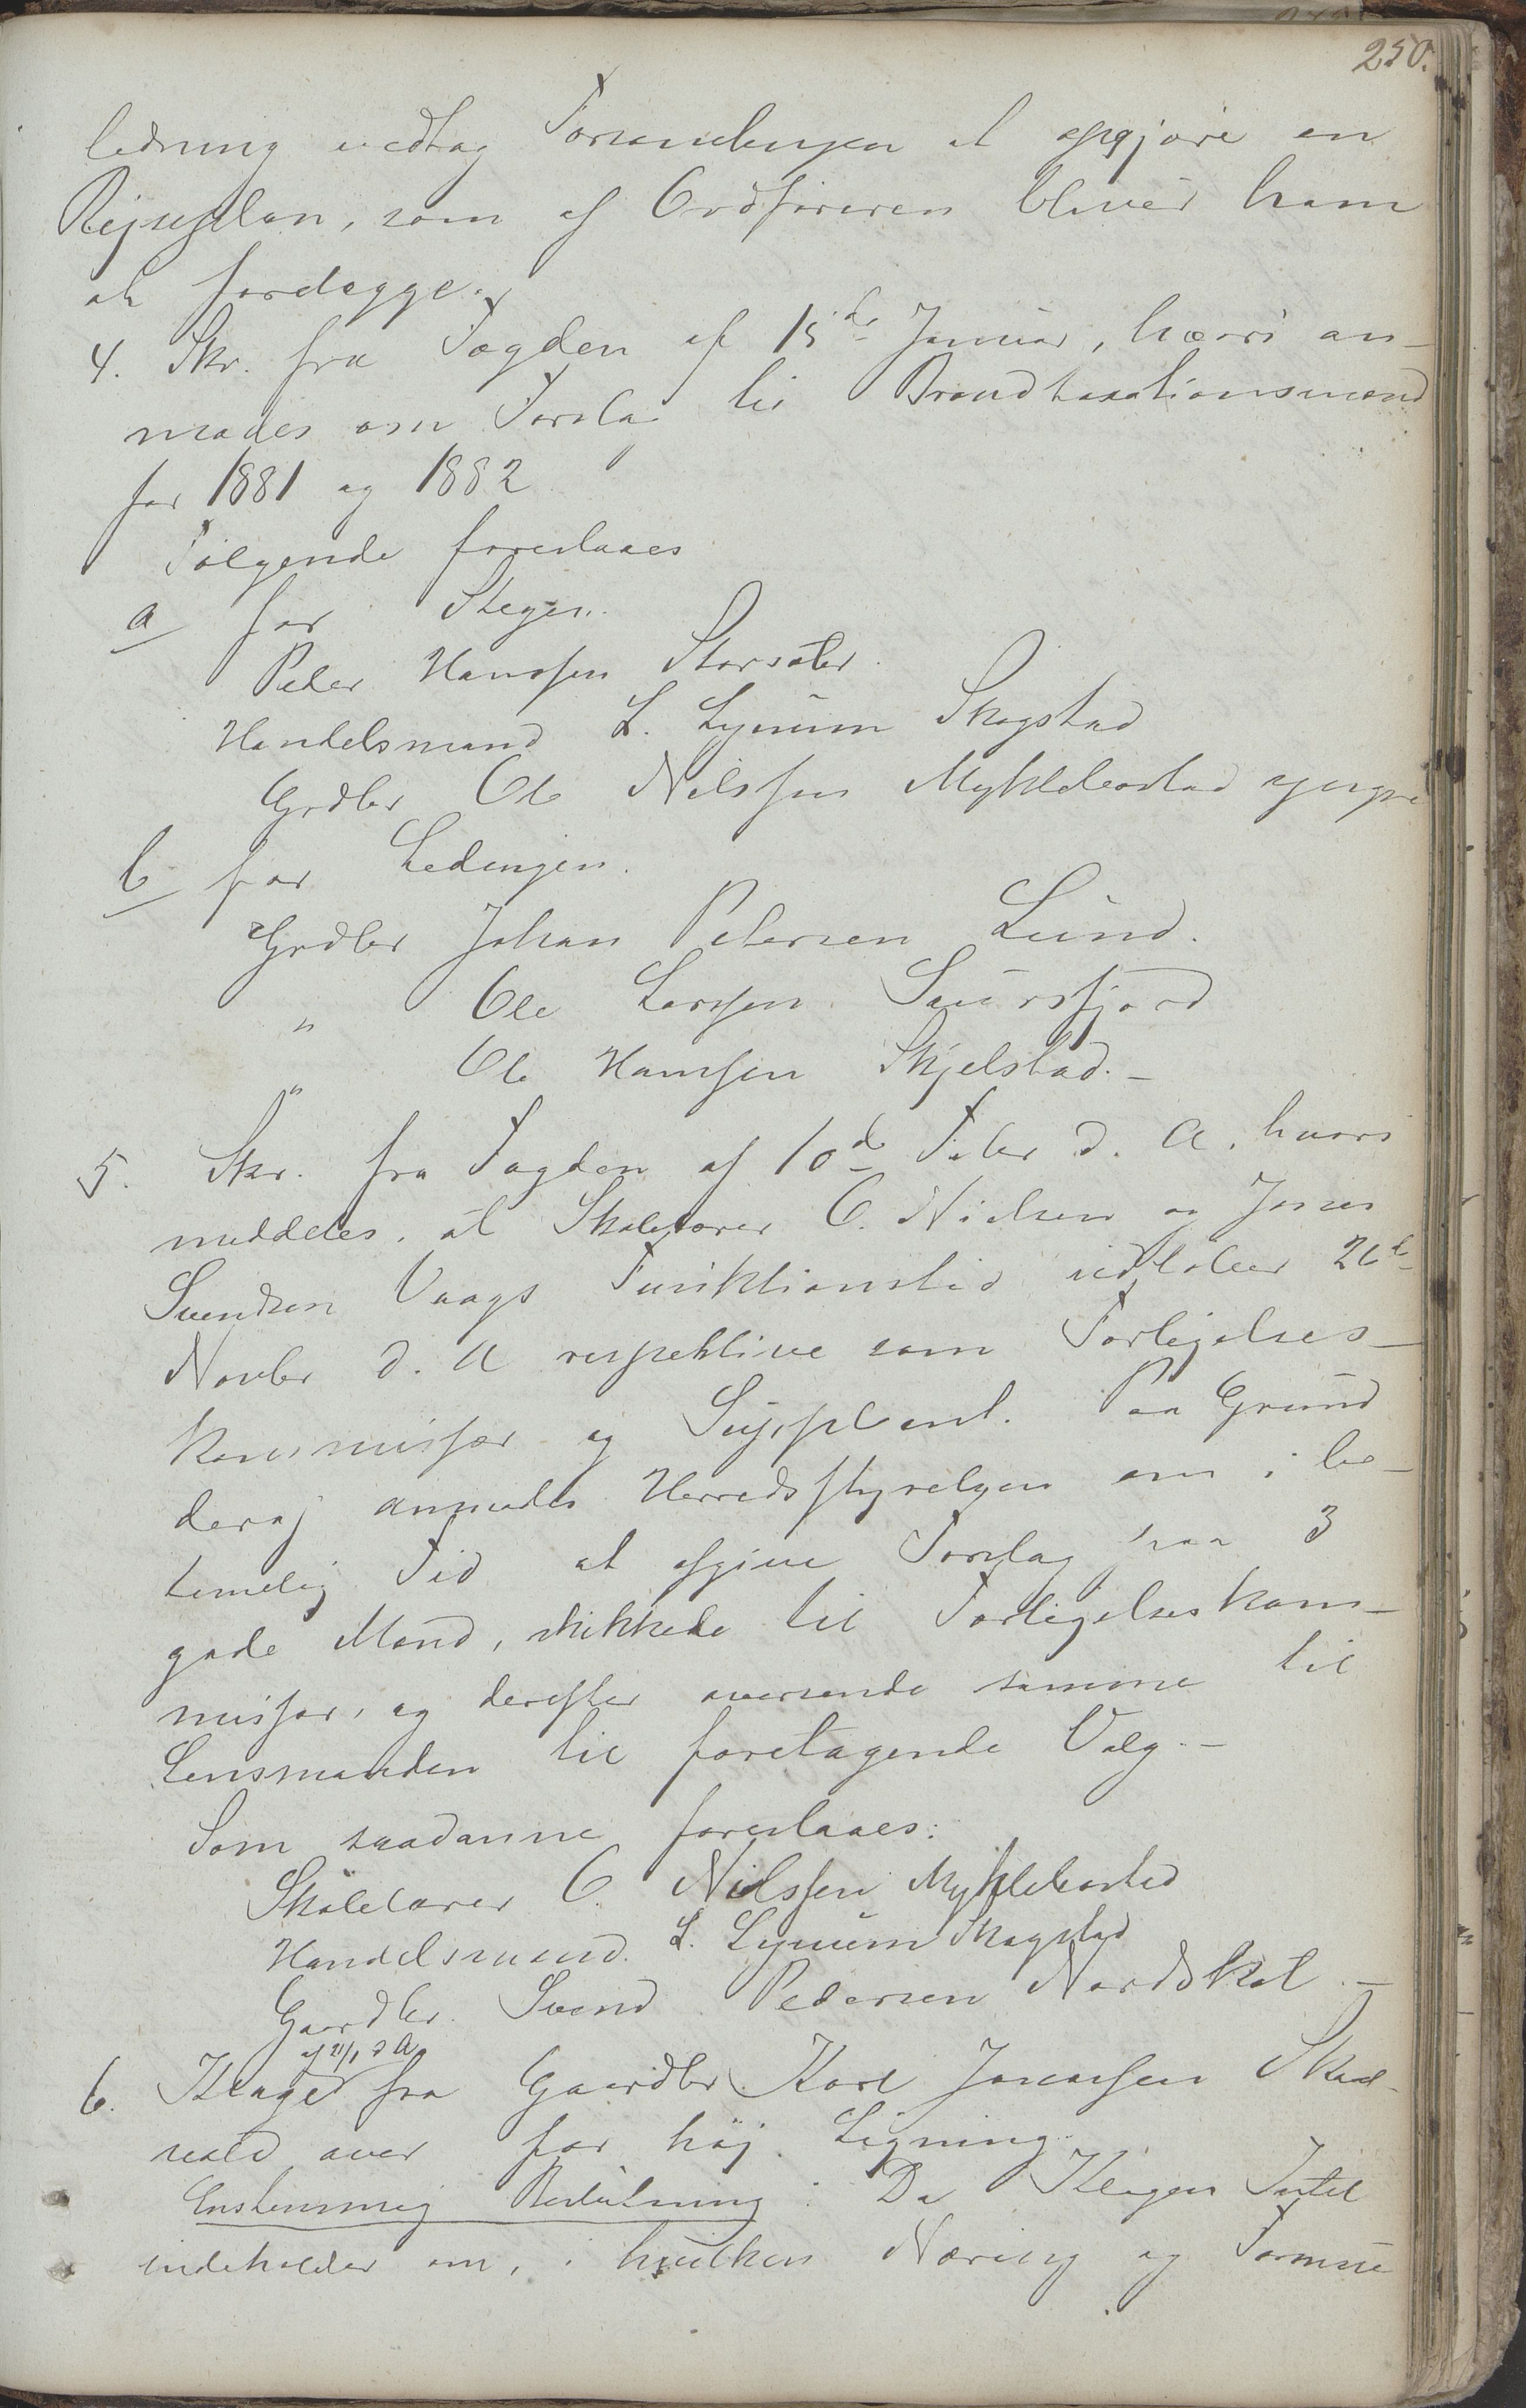 250.
ledning vedtag Forsamlingen at opgjøre en
Rejseplan, som af Ordføreren bliver ham
at forelægge.
4. Skr. fra Fogden af 15de Januar, hvori an-
modes om Forslag til Brandtaxationsmænd
for 1881 og 1882
Følgende foreslaaes
a for Stegen.
Peder Hanssen Storsæter.
Handelsmand L. Lynum Skogstad
Grdbr Ole Nilssen Myklebostad yngre
b for Ledingen.
Grdbr Johan Petersen Lund.
" Ole Larssen Saursfjord
" Ole Hanssen Skjelstad. -
5. Skr. fra Fogden af 10de Feber d. A. hvori
meddeles, at Skolelærer O. Nielsen og Jonas
Svendsen Vaags Funktionstid udløber 26de
Novber d. A respektive som Forligelses-
kommissær og Suppleant. Paa Grund
deraf anmodes Herredsstyrelsen om i be-
timelig Tid at afgive Forslag paa 3
gode Mænd, skikkede til Forligelseskom-
missær, og derefter oversende samme til
Lensmanden til foretagende Valg. -
Som saadanne foreslaaes:
Skolelærer O. Nielssen Myklebostad
Handelsmand L. Lynum Skogstad
Gaardbr. Svend Pedersen Nordskot. -
af 21/1 d A
6. Klage fra Gaardbr. Karl Jonassen Skaal-
vold over for høj Ligning.
Enstemmig Beslutning: Da Klagen Intet
indeholder om, i hvilken Næring og Formue